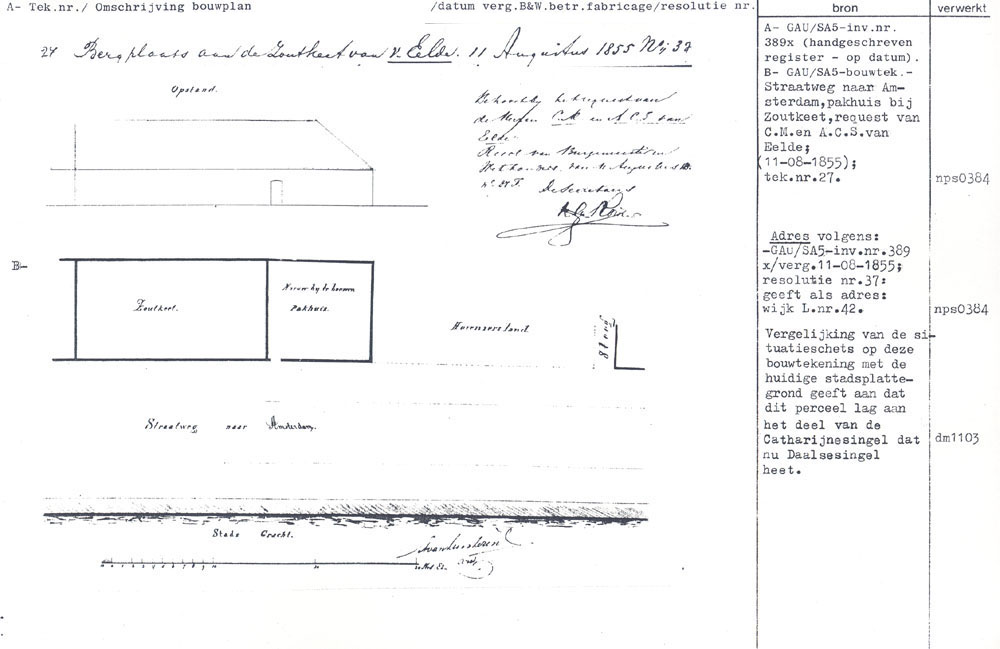 A- Tek.nr./ Omschrijving bouwplan /datum verg.B&W.betr.fabricage/resolutie nr.
bron
verwerkt
27 Bergplaats aan de Zoutkeet van v. Eelde. 11 Augustus 1855 N: 37
Opstand.
Behoort bij het request van
de Heeren C.M. en A.C.S. van
Eelde.
van Burgemeester en
Wethouders van 11 Augustus
De Secretaris
B-
Zoutkeet.
Nieuw by te bouwen
Pakhuis.
Straatweg naar Amsterdam.
Stads Gracht.
A- GAU/SA5-inv.nr.
389x (handgeschreven
register - op datum).
B- GAU/SA5-bouwtek.-
Straatweg naar Am-
sterdam,pakhuis bij
Zoutkeet,request van
C.M.en A.C.S.van
Eelde;
(11-08-1855);
tek.nr.27.
nps0384
Adres volgens:
-GAU/SA5-inv.nr.389
x/verg.11-08-1855;
resolutie nr.37:
geeft als adres:
wijk L.nr.42.
nps0384
Vergelijking van de si-
tuatieschets op deze
bouwtekening met de
huidige stadsplatte-
grond geeft aan dat
dit perceel lag aan
het deel van de
Catharijnesingel dat
nu Daalsesingel
heet.
dm1103